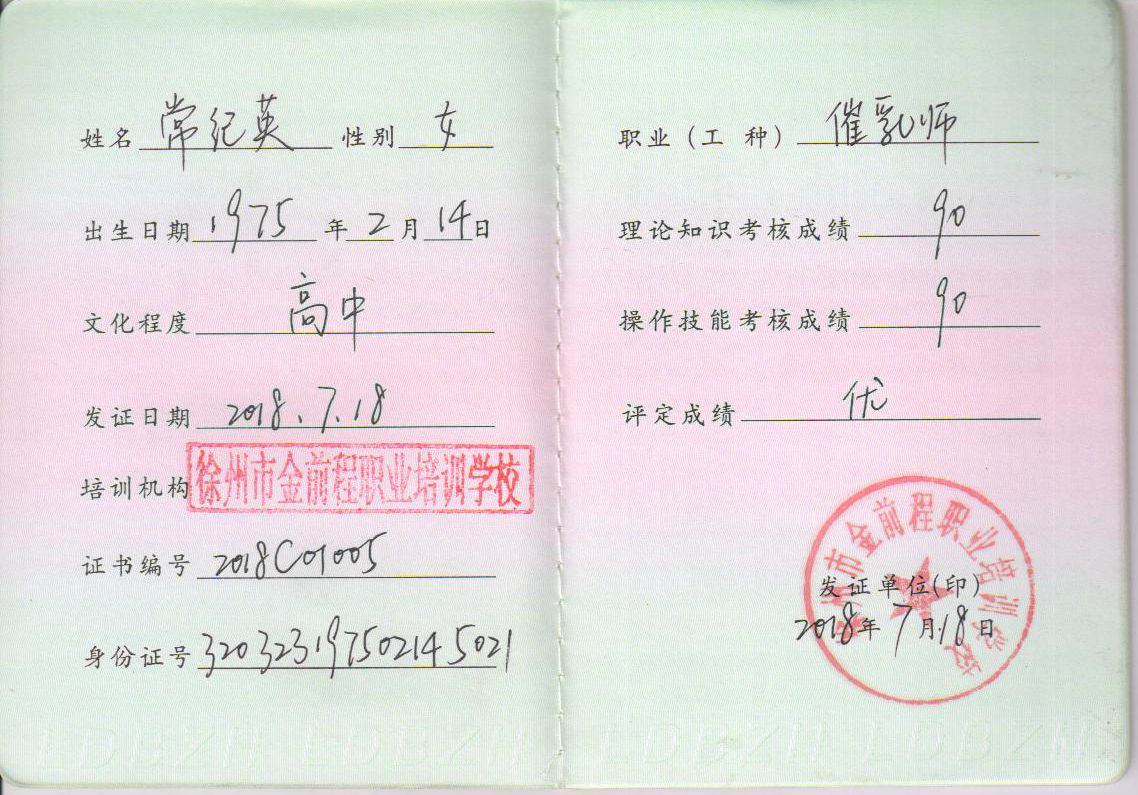 姓名 常纪英 性别 女
出生日期 1975 年 2 月 14 日
文化程度 高中
发证日期 2018.7.18
培训机构 徐州市金前程职业培训学校
证书编号 2018C01005
身份证号 320323197502145021
职业（工 种） 催乳师
理论知识考核成绩 90
操作技能考核成绩 90
评定成绩 优
徐州市金前程职业培训学校
发证单位(印)
2018年7月18日
LDBZH LDBZH LDBZH LDBZH